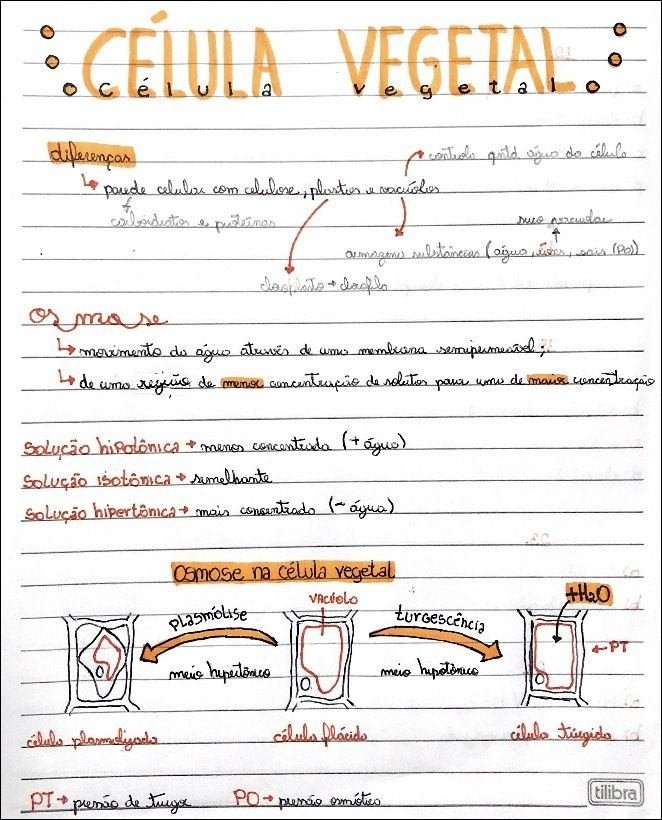 CÉLULA VEGETAL
Célula vegetal
diferenças
controla qntd água da célula
parede celular com celulose, plastos e vacúolos
carboidratos e proteínas
suco vacuolar
armazena substâncias (água, íons, sais (PO))
cloroplasto → clorofila
Osmose
movimento da água através de uma membrana semipermeável;
de uma região de menor concentração de solutos para uma de maior concentração
Solução hipotônica → menos concentrada (+ água)
Solução isotônica → semelhante
Solução hipertônica → mais concentrada (- água)
Osmose na célula vegetal
vacúolo
+H2O
plasmólise
turgescência
← PT
meio hipertônico
meio hipotônico
célula plasmolizada
célula flácida
célula túrgida
PT → pressão de turgor
PO → pressão osmótica
tilibra